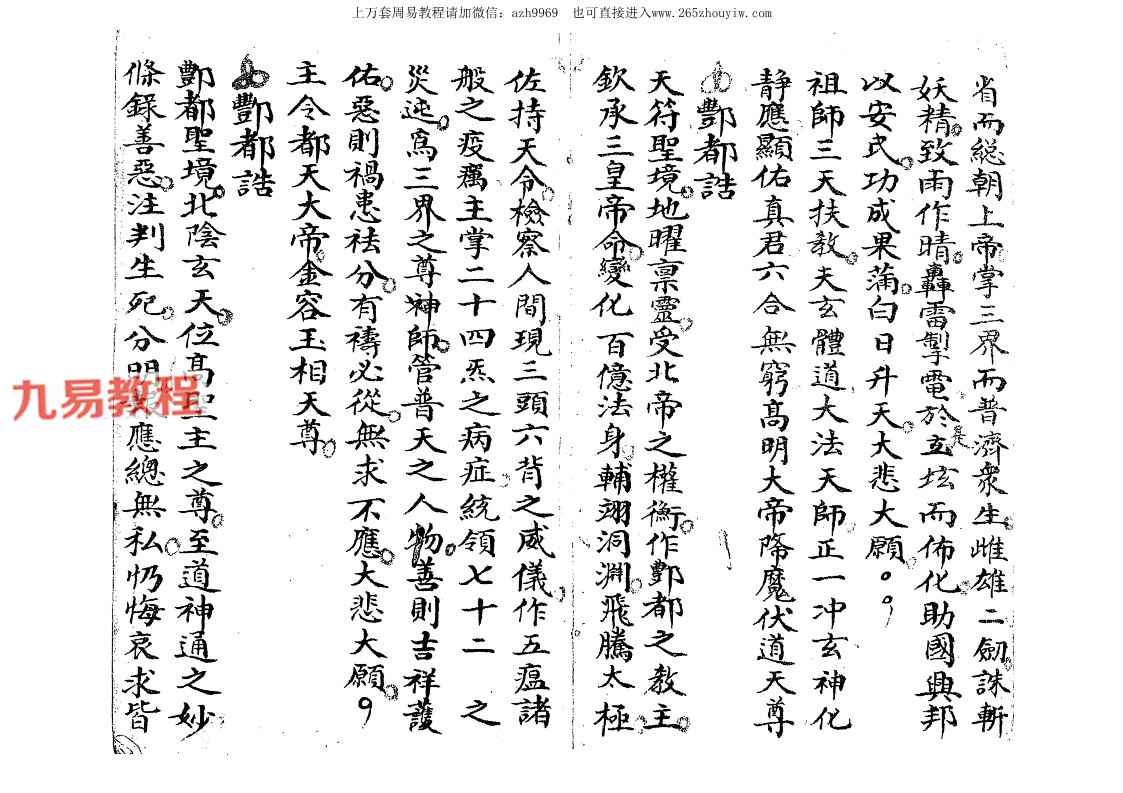 上万套周易教程请加微信：azh9969　也可直接进入www.265zhouyiw.com
省而総朝上帝掌三界而普濟衆生雌雄二劒誅斬
妖精致雨作晴轟雷掣電於玄坛而佈化助國興邦
以安民功成果蒲白日升天大悲大願
祖師三天扶教夫玄體道大法天師正一冲玄神化
静應顯佑真君六合無窮高明大帝降魔伏道天尊
酆都誥
天符聖境地曜禀靈受北帝之權衡作酆都之教主
欽承三皇帝命變化百億法身輔翊洞渊飛騰太極
佐持天令檢察人間現三頭六背之威儀作五瘟諸
般之疫癘主掌二十四炁之病症統領七十二之
災迍爲三界之尊神師管普天之人物善則吉祥護
佑惡則禍患祛分有禱必從無求不應大悲大願
主令都天大帝金容玉相天尊
酆都誥
酆都聖境北陰玄天位髙聖主之尊至道神通之妙
條錄善惡注判生死分明應總無私忉悔哀求皆
九易教程